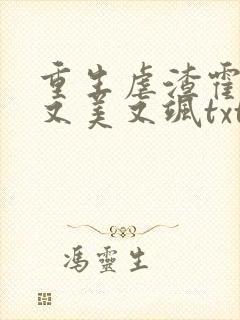 重生虐渣霍
又美又飒txt
冯靈生